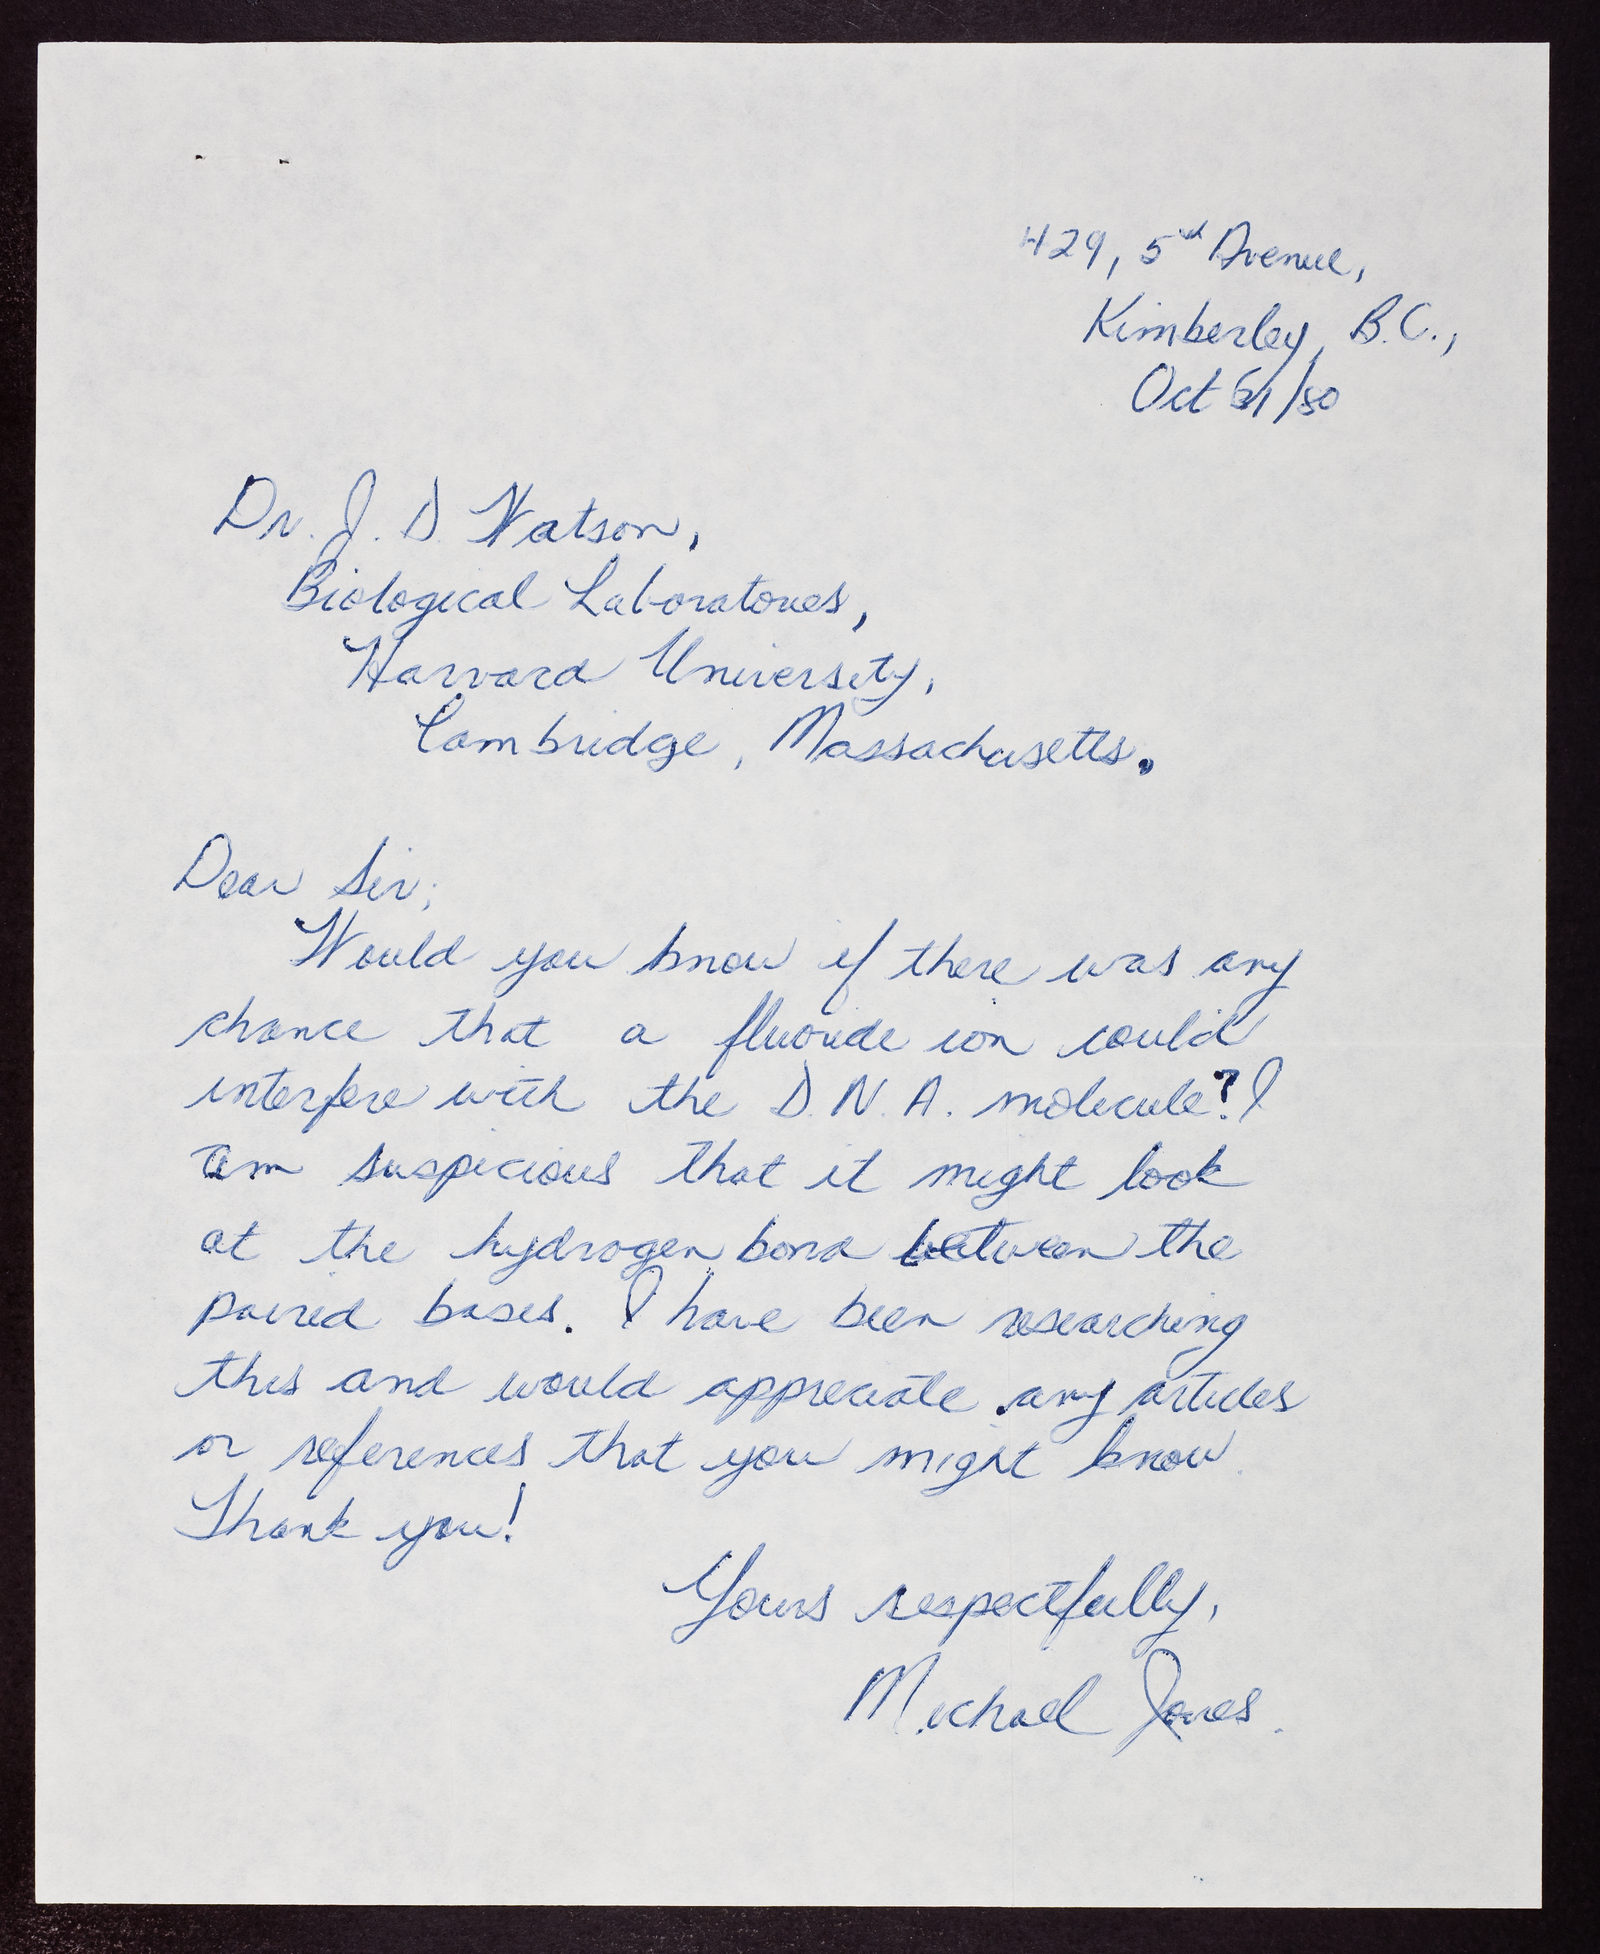 429, 5th Avenue,
Kimberley, B.C.,
Oct /80
Dr. J. D. Watson,
Biological Laboratories,
Harvard University,
Cambridge, Massachusetts.
Dear Sir;
Would you know if there was any
chance that a fluoride ion could
interfere with the D.N.A. molecule? I
am suspicious that it might look
at the hydrogen bond between the
paired bases. I have been researching
this and would appreciate any articles
or references that you might know.
Thank you!
Yours respectfully,
Michael Jones.